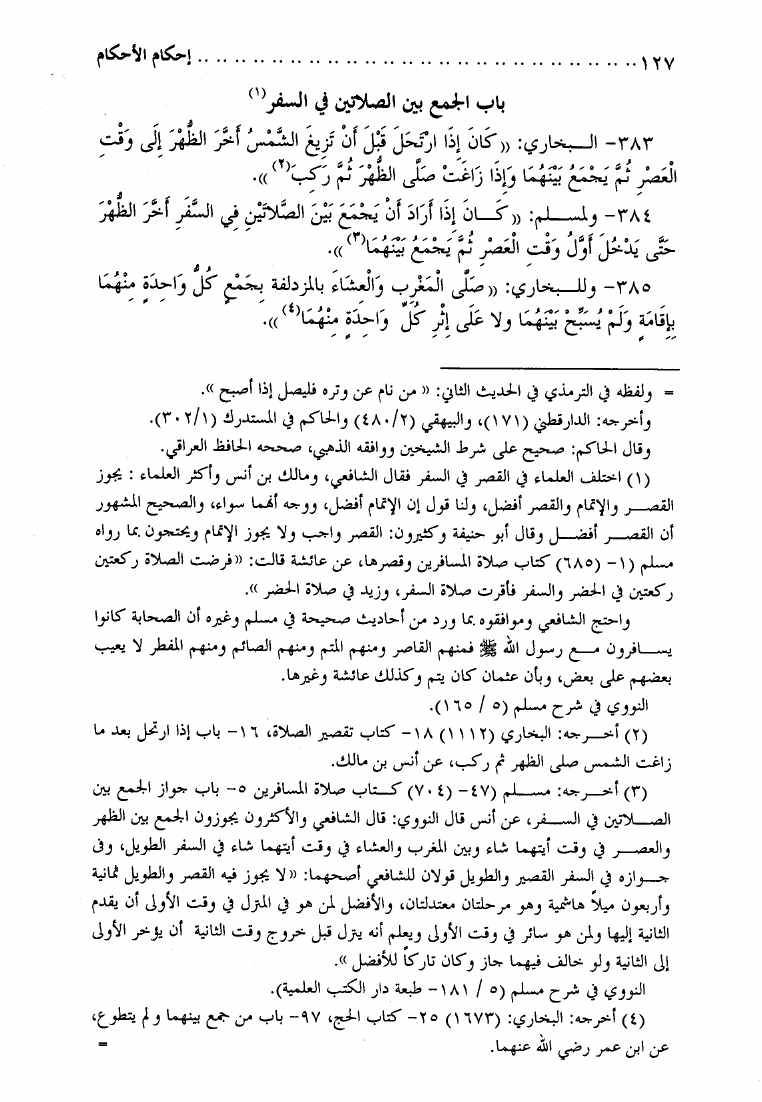 ١٢٧ .................................................. إحكام الأحكام
باب الجمع بين الصلاتين في السفر(١)
٣٨٣- الـبخاري: «كَانَ إِذَا ارْتَحَلَ قَبْلَ أَنْ تَزِيغَ الشَّمْسُ أَخَّرَ الظُّهْرَ إِلَى وَقْتِ
الْعَصْرِ ثُمَّ يَجْمَعُ بَيْنَهُمَا وَإِذَا زَاغَتْ صَلَّى الظُّهْرَ ثُمَّ رَكِبَ(٢)».
٣٨٤- ولمسـلم: «كَـانَ إِذَا أَرَادَ أَنْ يَجْمَعَ بَيْنَ الصَّلاَتَيْنِ فِي السَّفَرِ أَخَّرَ الظُّهْرَ
حَتَّى يَدْخُلَ أَوَّلُ وَقْتِ الْعَصْرِ ثُمَّ يَجْمَعُ بَيْنَهُمَا(٣)».
٣٨٥- وللـبخاري: «صَلَّى الْمَغْرِبَ وَالْعِشَاءَ بالمزدلفة بِجَمْعٍ كُلُّ وَاحِدَةٍ مِنْهُمَا
بِإِقَامَةٍ وَلَمْ يُسَبِّحْ بَيْنَهُمَا ولا عَلَى إِثْرِ كُلِّ وَاحِدَةٍ مِنْهُمَا(٤)».
= ولفظه في الترمذي في الحديث الثاني: «من نام عن وتره فليصل إذا أصبح».
وأخرجه: الدارقطني (١٧١)، والبيهقي (٤٨٠/٢) والحاكم في المستدرك (٣٠٢/١).
وقال الحاكم: صحيح على شرط الشيخين ووافقه الذهبي، صححه الحافظ العراقي.
(١) اختلف العلماء في القصر في السفر فقال الشافعي، ومالك بن أنس وأكثر العلماء: يجوز
القصـر والإتمام والقصر أفضل، ولنا قول إن الإتمام أفضل، ووجه أنهما سواء، والصحيح المشهور
أن القصـر أفضـل وقال أبو حنيفة وكثيرون: القصر واجب ولا يجوز الإتمام ويحتجون بما رواه
مسلم (١- (٦٨٥) كتاب صلاة المسافرين وقصرها، عن عائشة قالت: «فرضت الصلاة ركعتين
ركعتين في الحضر والسفر فأقرت صلاة السفر، وزيد في صلاة الحضر».
واحتج الشافعي وموافقوه بما ورد من أحاديث صحيحة في مسلم وغيره أن الصحابة كانوا
يسـافرون مـع رسول الله ﷺ فمنهم القاصر ومنهم المتم ومنهم الصائم ومنهم المفطر لا يعيب
بعضهم على بعض، وبأن عثمان كان يتم وكذلك عائشة وغيرها.
النووي في شرح مسلم (٥ / ١٦٥).
(٢) أخـرجه: البخاري (١١١٢) ١٨- كتاب تقصير الصلاة، ١٦- باب إذا ارتحل بعد ما
زاغت الشمس صلى الظهر ثم ركب، عن أنس بن مالك.
(٣) أخـرجه: مسـلم (٤٧- (٧٠٤) كـتاب صلاة المسافرين ٥- باب جواز الجمع بين
الصـلاتين في السـفر، عن أنس قال النووي: قال الشافعي والأكثرون يجوزون الجمع بين الظهر
والعصـر في وقت أيتهما شاء وبين المغرب والعشاء في وقت أيتهما شاء في السفر الطويل، وفى
جـوازه في السفر القصير والطويل قولان للشافعي أصحهما: «لا يجوز فيه القصر والطويل ثمانية
وأربعون ميلاً هاشمية وهو مرحلتان معتدلتان، والأفضل لمن هو في المنزل في وقت الأولى أن يقدم
الثانية إليها ولمن هو سائر في وقت الأولى ويعلم أنه ينزل قبل خروج وقت الثانية أن يؤخر الأولى
إلى الثانية ولو خالف فيهما جاز وكان تاركاً للأفضل».
النووي في شرح مسلم (٥ / ١٨١- طبعة دار الكتب العلمية).
(٤) أخرجه: البخاري: (١٦٧٣) ٢٥- كتاب الحج، ٩٧- باب من جمع بينهما ولم يتطوع،
عن ابن عمر رضي الله عنهما. =